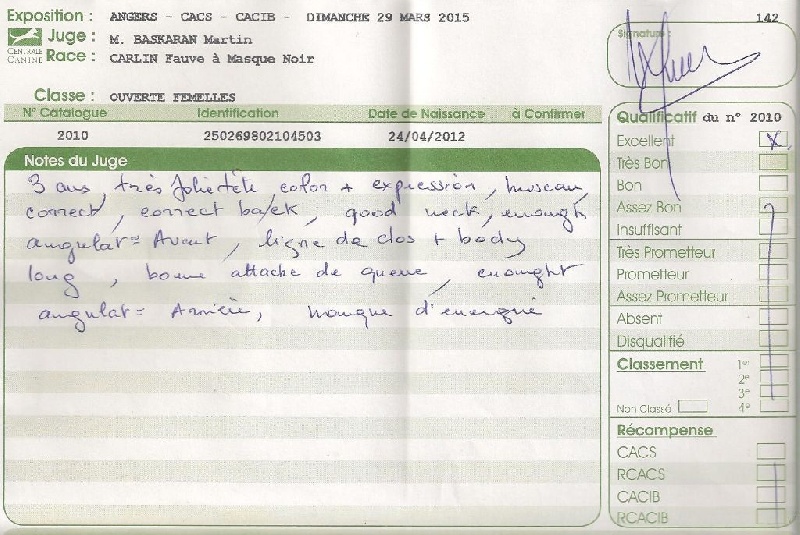 Exposition : ANGERS - CACS - CACIB - DIMANCHE 29 MARS 2015
142
Juge : M. BASKARAN Martin
CENTRALE CANINE
Race : CARLIN Fauve à Masque Noir
Signature :
Classe : OUVERTE FEMELLES
N° Catalogue Identification Date de Naissance à Confirmer
2010 250269802104503 24/04/2012
Notes du Juge
3 ans, très jolie tête color + expression, museau
correct, correct back, good neck, enought
angulat= Avant, ligne de dos + body
long, bonne attache de queue, enought
angulat= Arrière, manque d'energie
Qualificatif du n° 2010
Excellent X
Très Bon
Bon
Assez Bon
Insuffisant
Très Prometteur
Prometteur
Assez Prometteur
Absent
Disqualifié
Classement 1er
2e
3e
Non Classé 4e
Récompense
CACS
RCACS
CACIB
RCACIB